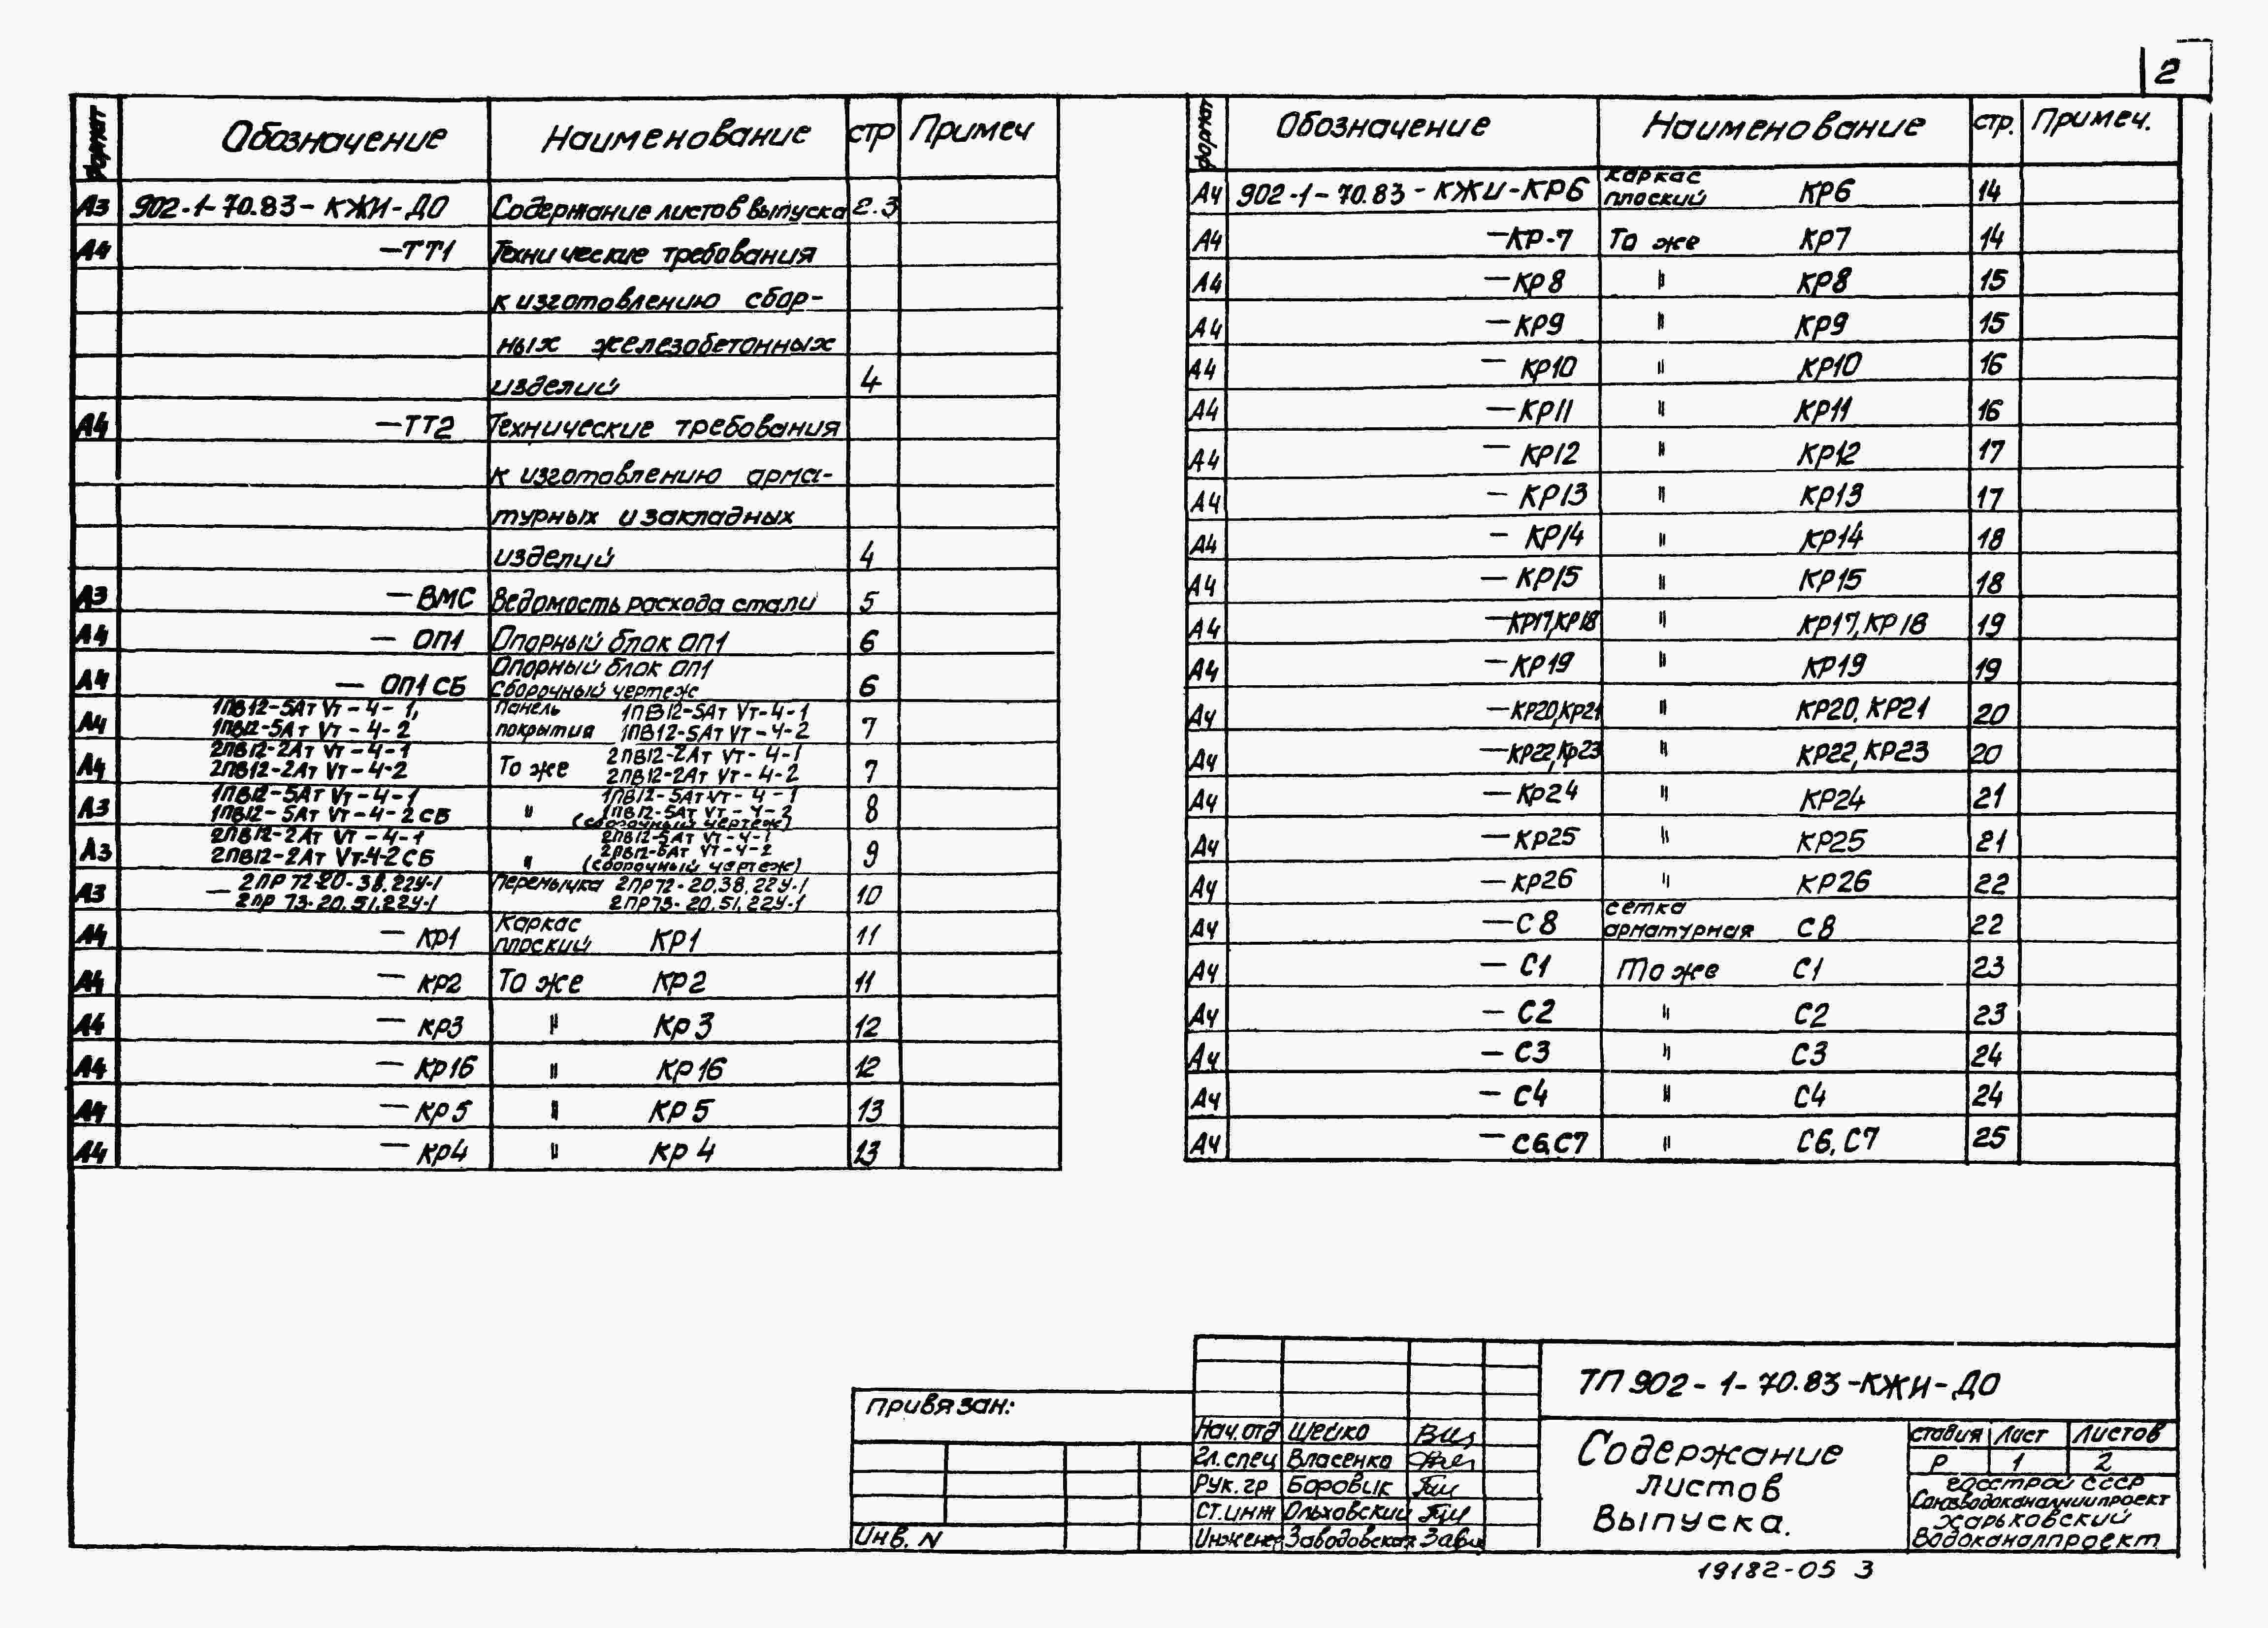 2
формат Обозначение Наименование стр Примеч
А3 902-1-70.83-КЖИ-ДО Содержание листов выпуска 2.3
А4 -ТТ1 Технические требования
к изготовлению сбор-
ных железобетонных
изделий 4
А4 -ТТ2 Технические требования
к изготовлению арма-
турных и закладных
изделий 4
А3 -ВМС Ведомость расхода стали 5
А4 - ОП1 Опорный блок ОП1 6
Опорный блок ОП1
А4 - ОП1 СБ Сборочный чертеж 6
1ПВ12-5Ат Vт-4-1, Панель 1ПВ12-5Ат Vт-4-1
А4 1ПВ12-5Ат Vт-4-2 покрытия 1ПВ12-5Ат Vт-4-2 7
2ПВ12-2Ат Vт-4-1 2ПВ12-2Ат Vт-4-1
А4 2ПВ12-2Ат Vт-4-2 То же 2ПВ12-2Ат Vт-4-2 7
1ПВ12-5Ат Vт-4-1 1ПВ12-5Ат Vт-4-1
А3 1ПВ12-5Ат Vт-4-2 СБ " 1ПВ12-5Ат Vт-4-2 8
(сборочный чертеж)
2ПВ12-2Ат Vт-4-1 2ПВ12-5Ат Vт-4-1
А3 2ПВ12-2Ат Vт-4-2 СБ " 2ПВ12-5Ат Vт-4-2 9
(сборочный чертеж)
- 2ПР 72-20-38.22У-1 Перемычка 2ПР72-20.38.22У-1
А3 2ПР 73-20.51.22У-1 2ПР73-20.51.22У-1 10
Каркас
А4 - КР1 плоский КР1 11
А4 - КР2 То же КР2 11
А4 - КР3 " КР3 12
А4 - КР16 " КР16 12
А4 - КР5 " КР5 13
А4 - КР4 " КР4 13
формат Обозначение Наименование стр. Примеч.
каркас
А4 902-1-70.83-КЖИ-КР6 плоский КР6 14
А4 -КР-7 То же КР7 14
А4 -КР8 " КР8 15
А4 -КР9 " КР9 15
А4 - КР10 " КР10 16
А4 -КР11 " КР11 16
А4 - КР12 " КР12 17
А4 - КР13 " КР13 17
А4 - КР14 " КР14 18
А4 - КР15 " КР15 18
А4 -КР17,КР18 " КР17, КР18 19
А4 -КР19 " КР19 19
А4 -КР20,КР21 " КР20, КР21 20
А4 -КР22,КР23 " КР22, КР23 20
А4 -КР24 " КР24 21
А4 -КР25 " КР25 21
А4 -КР26 " КР26 22
сетка
А4 -С8 арматурная С8 22
А4 - С1 То же С1 23
А4 - С2 " С2 23
А4 - С3 " С3 24
А4 - С4 " С4 24
А4 - С6,С7 " С6, С7 25
Привязан:
Инв. N
ТП 902-1-70.83-КЖИ-ДО
Нач.отд Шейко
Гл.спец Власенко
Рук.гр Боровик
Ст.инж Ольховский
Инженер Заводовская
Содержание
листов
выпуска.
стадия Лист Листов
Р 1 2
Госстрой СССР
Союзводоканалниипроект
Харьковский
Водоканалпроект
19182-05 3